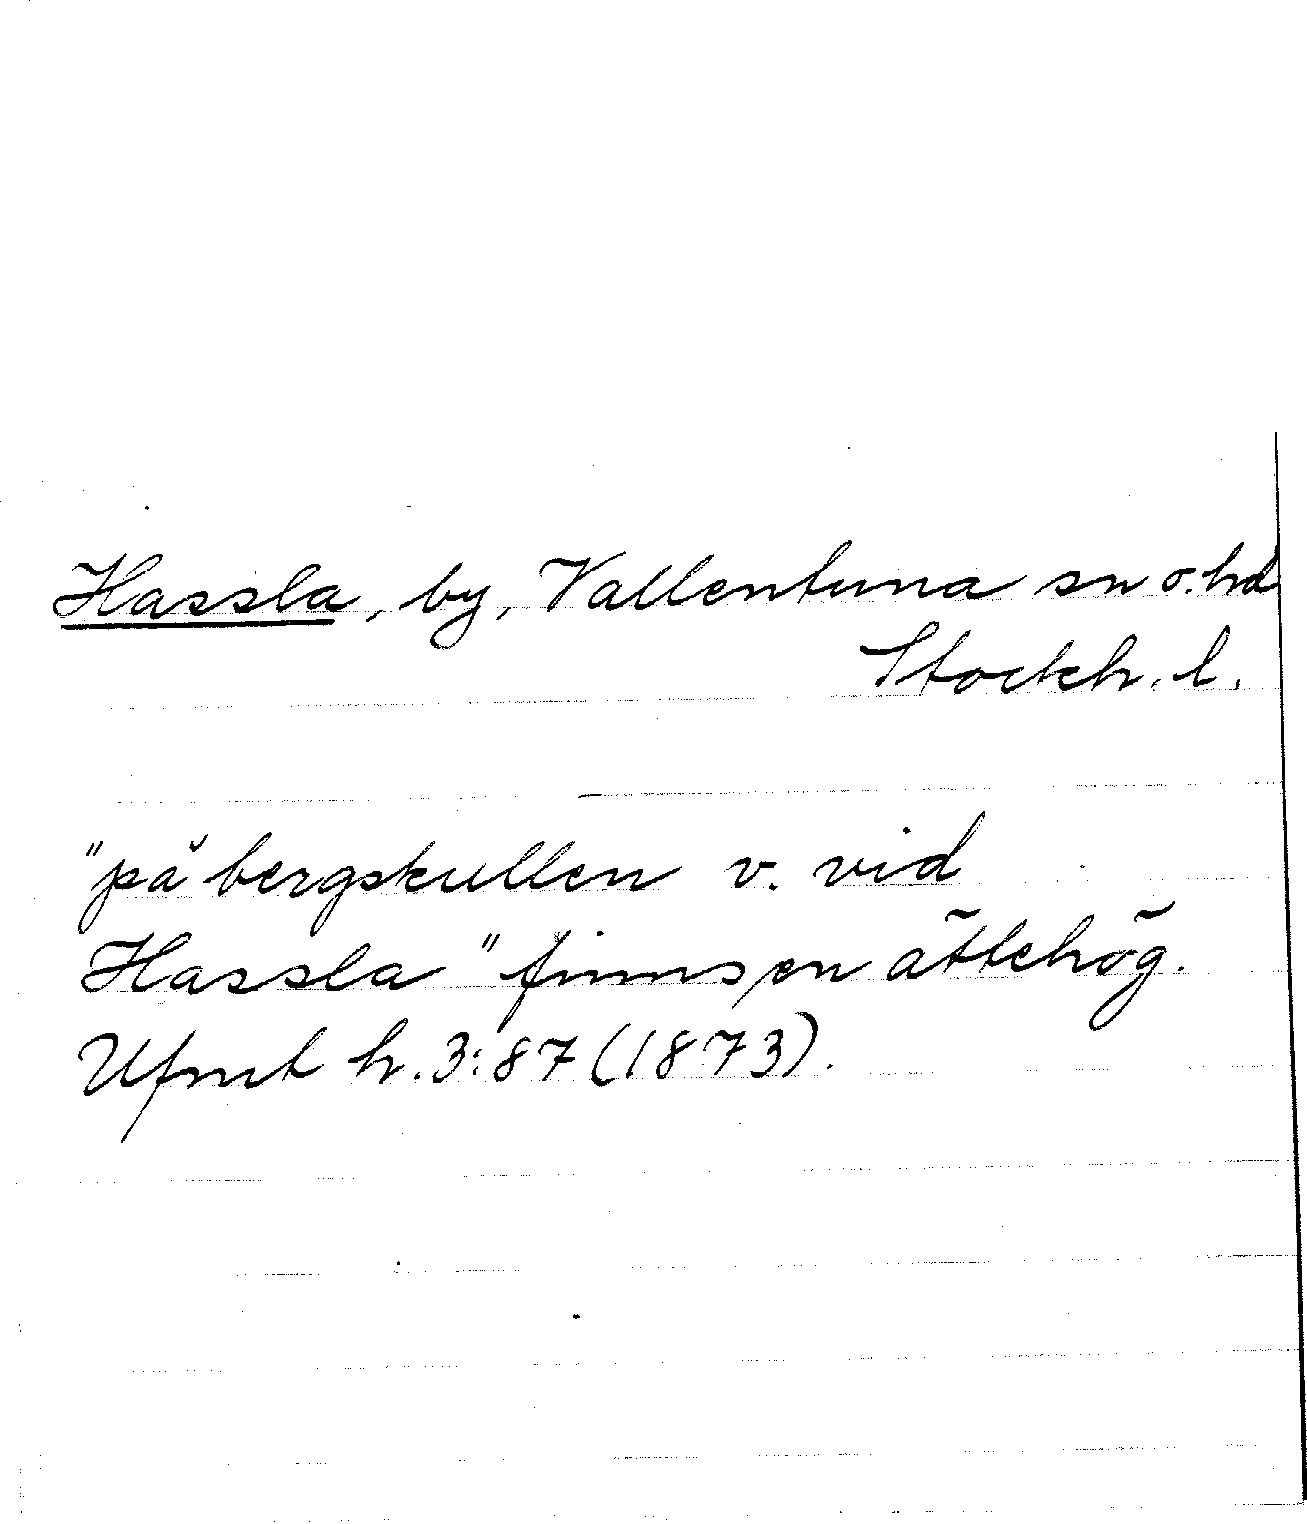 Hassla, by, Vallentuna sn o. hd
Stockh. l.
"på bergskullen v. vid
Hassla" finns en ättehög.
Ufmt h. 3:87 (1873).